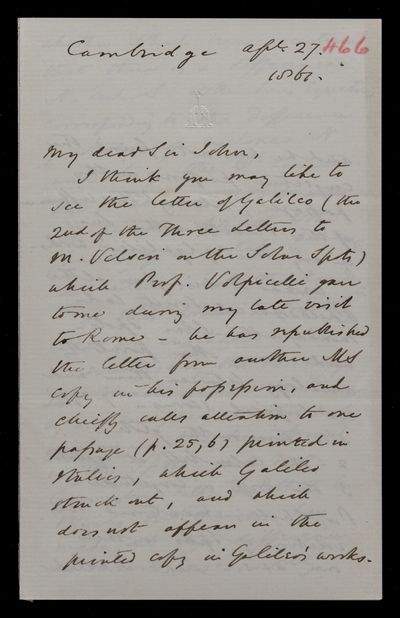 Cambridge Apl. 27. 466
1861.
My dear Sir John,
I think you may like to
see the letter of Galileo (the
2nd of the Three Letters to
M. Velseri on the Solar Spots)
which Prof. Volpicelli gave
to me during my late visit
to Rome – he has republished
the letter from another MS
copy in his possession, and
chiefly calls attention to one
passage (p. 25, 6) printed in
italics, which Galileo
struck out, and which
does not appear in the
printed copy in Galileo's works.